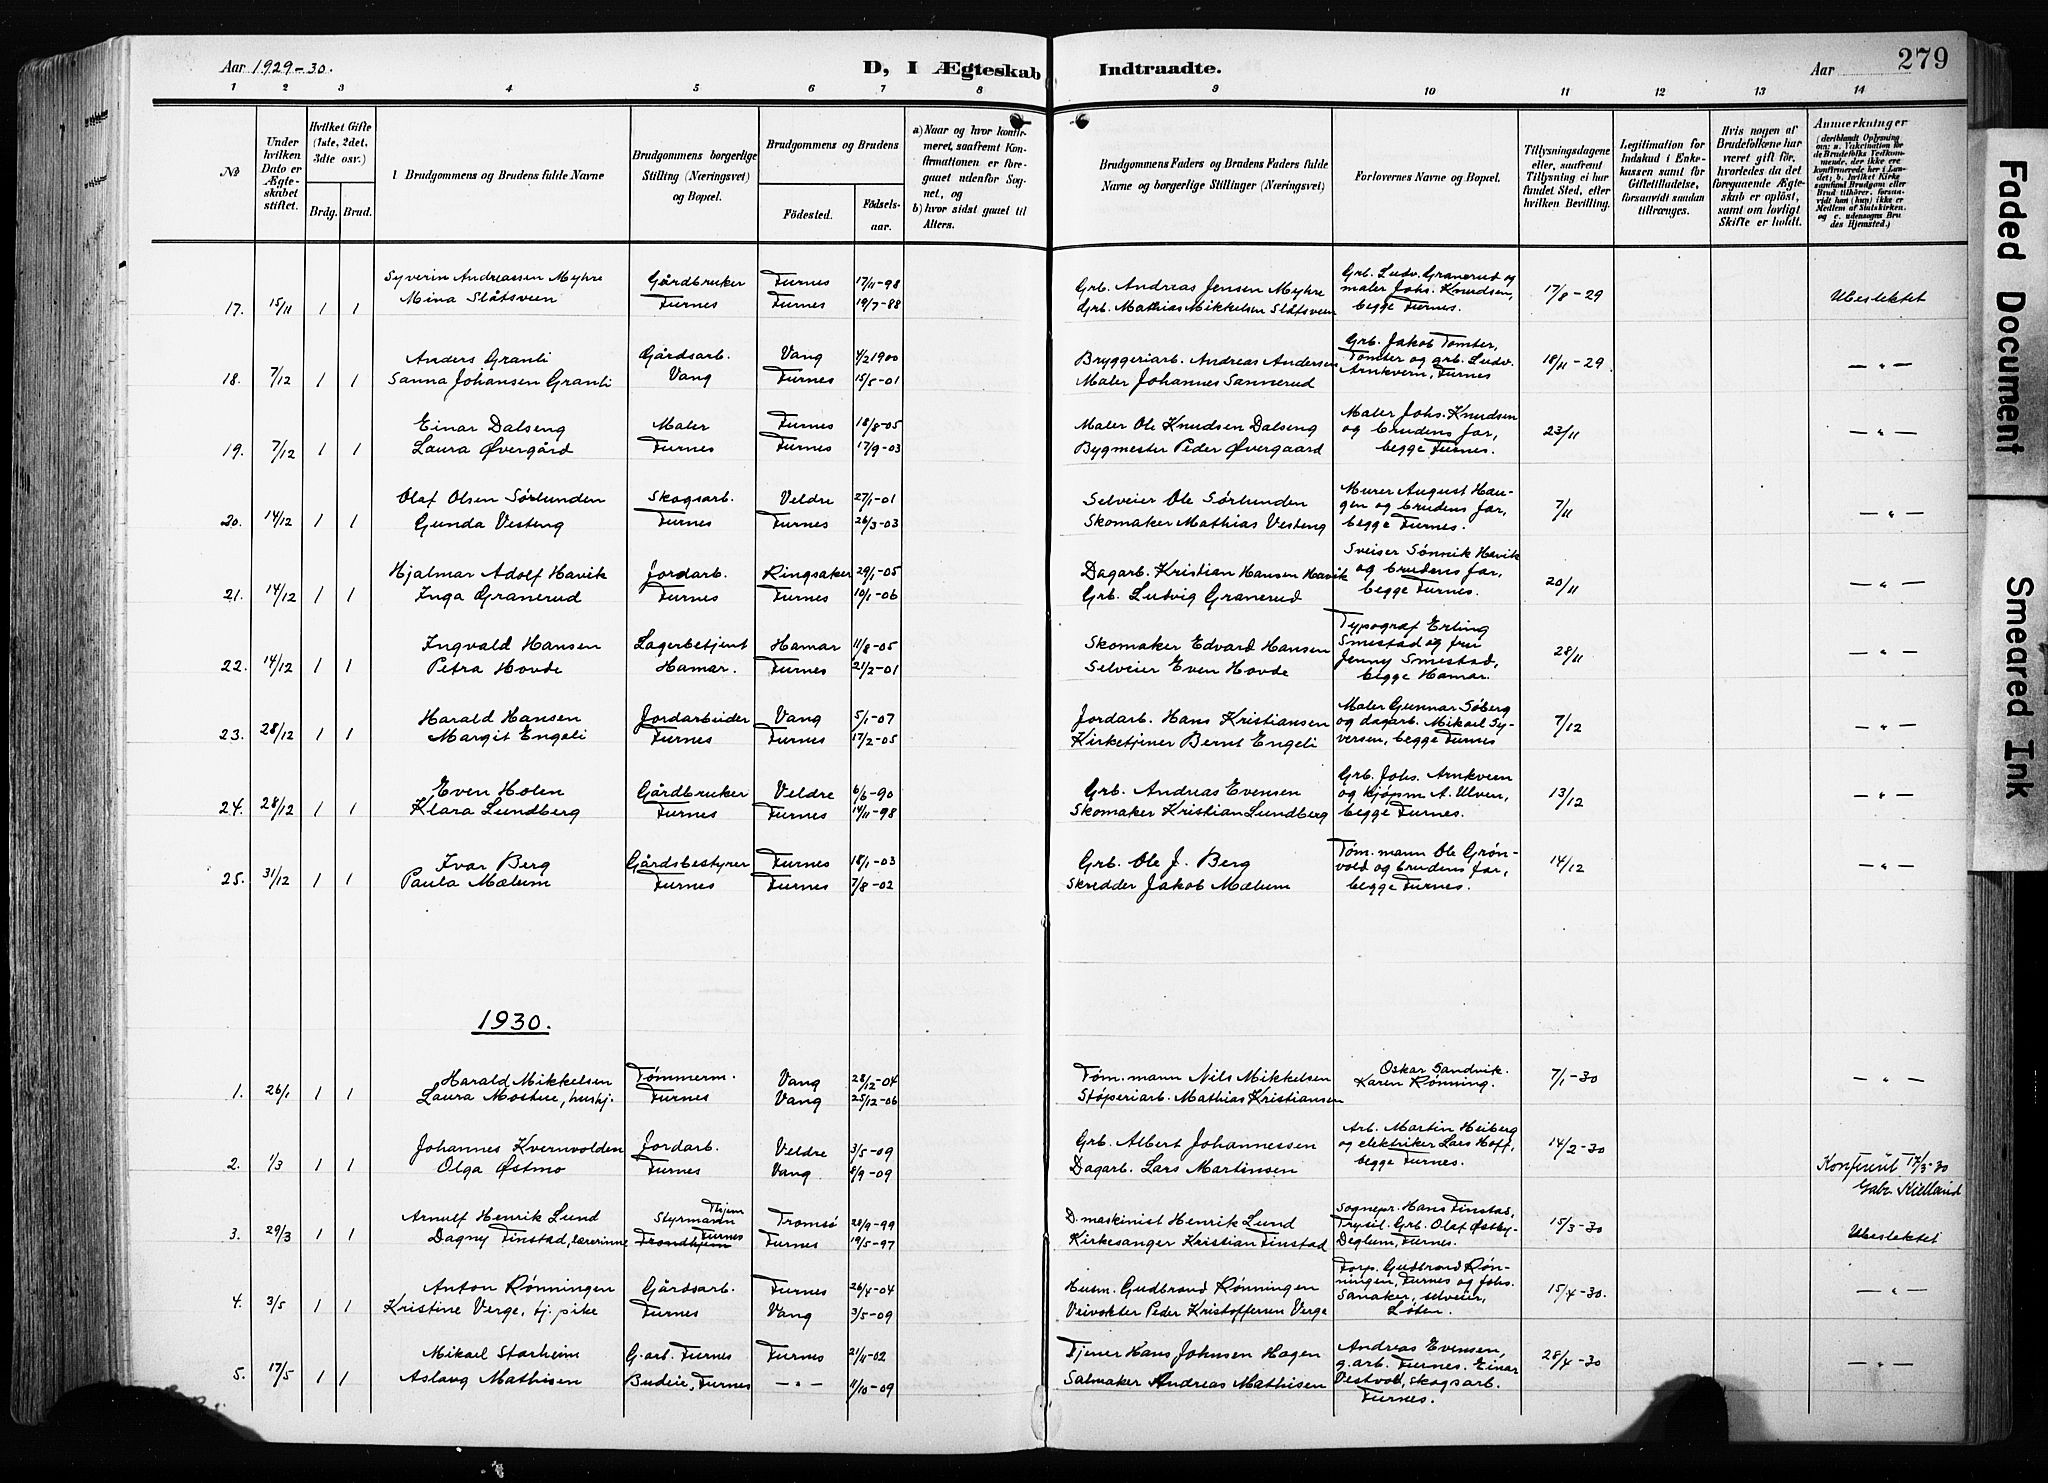 Aar 1929-30.
D, I Ægteskab Indtraadte.
Aar
279
1 2 3 4 5 6 7 8 9 10 11 12 13 14
No
Under hvilken Dato er Ægteskabet stiftet.
Hvilket Gifte (1ste, 2det, 3die osv.)
Brdg. Brud.
Brudgommens og Brudens fulde Navne
Brudgommens borgerlige Stilling (Næringsvei) og Bopæl.
Brudgommens og Brudens
Fødested. Fødselsaar.
a) Naar og hvor konfirmeret, saafremt Konfirmationen er foregaaet udenfor Sognet, og
b) hvor sidst gaaet til Alters.
Brudgommens Faders og Brudens Faders fulde Navne og borgerlige Stillinger (Næringsvei)
Forlovernes Navne og Bopæl.
Tillysningsdagene eller, saafremt Tillysning ei har fundet Sted, efter hvilken Bevilling.
Legitimation for Indskud i Enkekassen samt for Giftetilladelse, forsaavidt saadan tiltrænges.
Hvis nogen af Brudefolkene har været gift før, hvorledes da det foregaaende Ægteskab er opløst, samt om lovligt Skifte er holdt.
Anmærkninger
(deriblandt Oplysning om: a. Vakcination for de Brudefolks Vedkommende, der ikke ere konfirmerede her i Landet; b. hvilket Kirkesamfund Brudgom eller Brud tilhører, forsaavidt han (hun) ikke er Medlem af Statskirken, og c. udensogns Brudes Hjemsted.)
Syverin Andreassen Myhre Gårdbruker Furnes 17/11-98 Grb. Andreas Jensen Myhre Grb. Ludv. Granerud og
17. 15/11 1 1 Mina Slåtsveen Furnes Furnes 19/7-88 Grb. Mathias Mikkelsen Slåtsveen maler Johs. Knudsen, begge Furnes. 17/8-29 Ubeslektet
Anders Granli Gårdsarb. Vang 4/2 1900 Bryggeriarb. Andreas Andersen Grb. Jakob Tomter,
18. 7/12 1 1 Sanna Johansen Granli Vang Furnes 15/5-01 Maler Johannes Sannerud Tomter og grb. Ludv. Arnkvern, Furnes 18/11-29 — " —
Einar Dalseng Maler Furnes 18/8-05 Maler Ole Knudsen Dalseng Maler Johs. Knudsen
19. 7/12 1 1 Laura Øvergård Furnes Furnes 17/9-03 Bygmester Peder Øvergaard og brudens far, begge Furnes. 23/11 — " —
Olaf Olsen Sørlunden Skogsarb. Veldre 27/1-01 Selveier Ole Sørlunden Murer August Hau-
20. 14/12 1 1 Gunda Vesteng Furnes Furnes 26/3-03 Skomaker Mathias Vesteng gen og brudens far, begge Furnes. 7/11 — " —
Hjalmar Adolf Havik Jordarb. Ringsaker 29/1-05 Dagarb. Kristian Hansen Havik Sveiser Sønnik Havik
21. 14/12 1 1 Inga Granerud Furnes Furnes 10/1-06 Grb. Ludvig Granerud og brudens far, begge Furnes. 20/11 — " —
Ingvald Hansen Lagerbetjent Hamar 11/8-05 Skomaker Edvard Hansen Typograf Erling
22. 14/12 1 1 Petra Hovde Hamar. Furnes 21/2-01 Selveier Even Hovde Smestad og fru Jenny Smestad, begge Hamar. 28/11 — " —
Harald Hansen Jordarbeider Vang 5/1-07 Jordarb. Hans Kristiansen Maler Gunnar Søberg
23. 28/12 1 1 Margit Engeli Furnes Furnes 17/2-05 Kirketjener Bernt Engeli og dagarb. Mikael Syversen, begge Furnes 7/12 — " —
Even Holen Gårdbruker Veldre 6/6-90 Grb. Andreas Evensen Grb. Johs. Arnkvern
24. 28/12 1 1 Klara Lundberg Furnes Furnes 14/11-98 Skomaker Kristian Lundberg og kjøpm A. Ulven, begge Furnes. 13/12 — " —
Ivar Berg Gårdsbestyrer Furnes 18/1-03 Grb. Ole J. Berg Tøm.mann Ole Grøn-
25. 31/12 1 1 Paula Mælum Furnes Furnes 7/8-02 Skredder Jakob Mælum vold og brudens far, begge Furnes. 14/12 — " —
1930.
Harald Mikkelsen Tømmerm. Vang 28/12-04 Tøm.mann Nils Mikkelsen Oskar Sandvik.
1. 26/1 1 1 Laura Mostue, hushj. Furnes Vang 25/12-06 Støperiarb. Mathias Kristiansen Karen Rønning. 7/1-30 — " —
Johannes Kvernvolden Jordarb. Veldre 3/5-09 Grb. Albert Johannessen Arb. Martin Heiberg
2. 1/3 1 1 Olga Østmo Furnes Vang 8/9-09 Dagarb. Lars Martinsen og elektriker Lars Hoff, begge Furnes. 14/2-30
Konferert 17/3-30
Gabr. Kielland
Arnulf Henrik Lund Styrmann Tromsø 28/9-99 D.maskinist Henrik Lund Sognepr. Hans Finstad,
3. 29/3 1 1 Dagny Finstad, lærerinne Trondhjem Furnes Furnes 19/5-97 Kirkesanger Kristian Finstad Trysil. Grb. Olaf Østby-Deglum, Furnes. 15/3-30 Ubeslektet
Anton Rønningen Gårdsarb. Furnes 26/4-04 Husm. Gudbrand Rønningen Forp. Gudbrand Røn-
4. 3/5 1 1 Kristine Verge, tj. pike Furnes Vang 3/5-09 Veivokter Peder Kristoffersen Verge ningen, Furnes og Johs. Sanaker, selveier, Løten. 15/4-30. — " —
Mikael Starheim G.arb. Furnes Furnes 21/11-02 Tjener Hans Johnsen Hagen Andreas Evensen,
5. 17/5 1 1 Aslaug Mathisen Budeie, Furnes — " — 11/10-09 Salmaker Andreas Mathisen g.arb. Furnes. Einar Vestvold, skogsarb. Furnes. 28/4-30 — " —
Faded Document
Smeared Ink